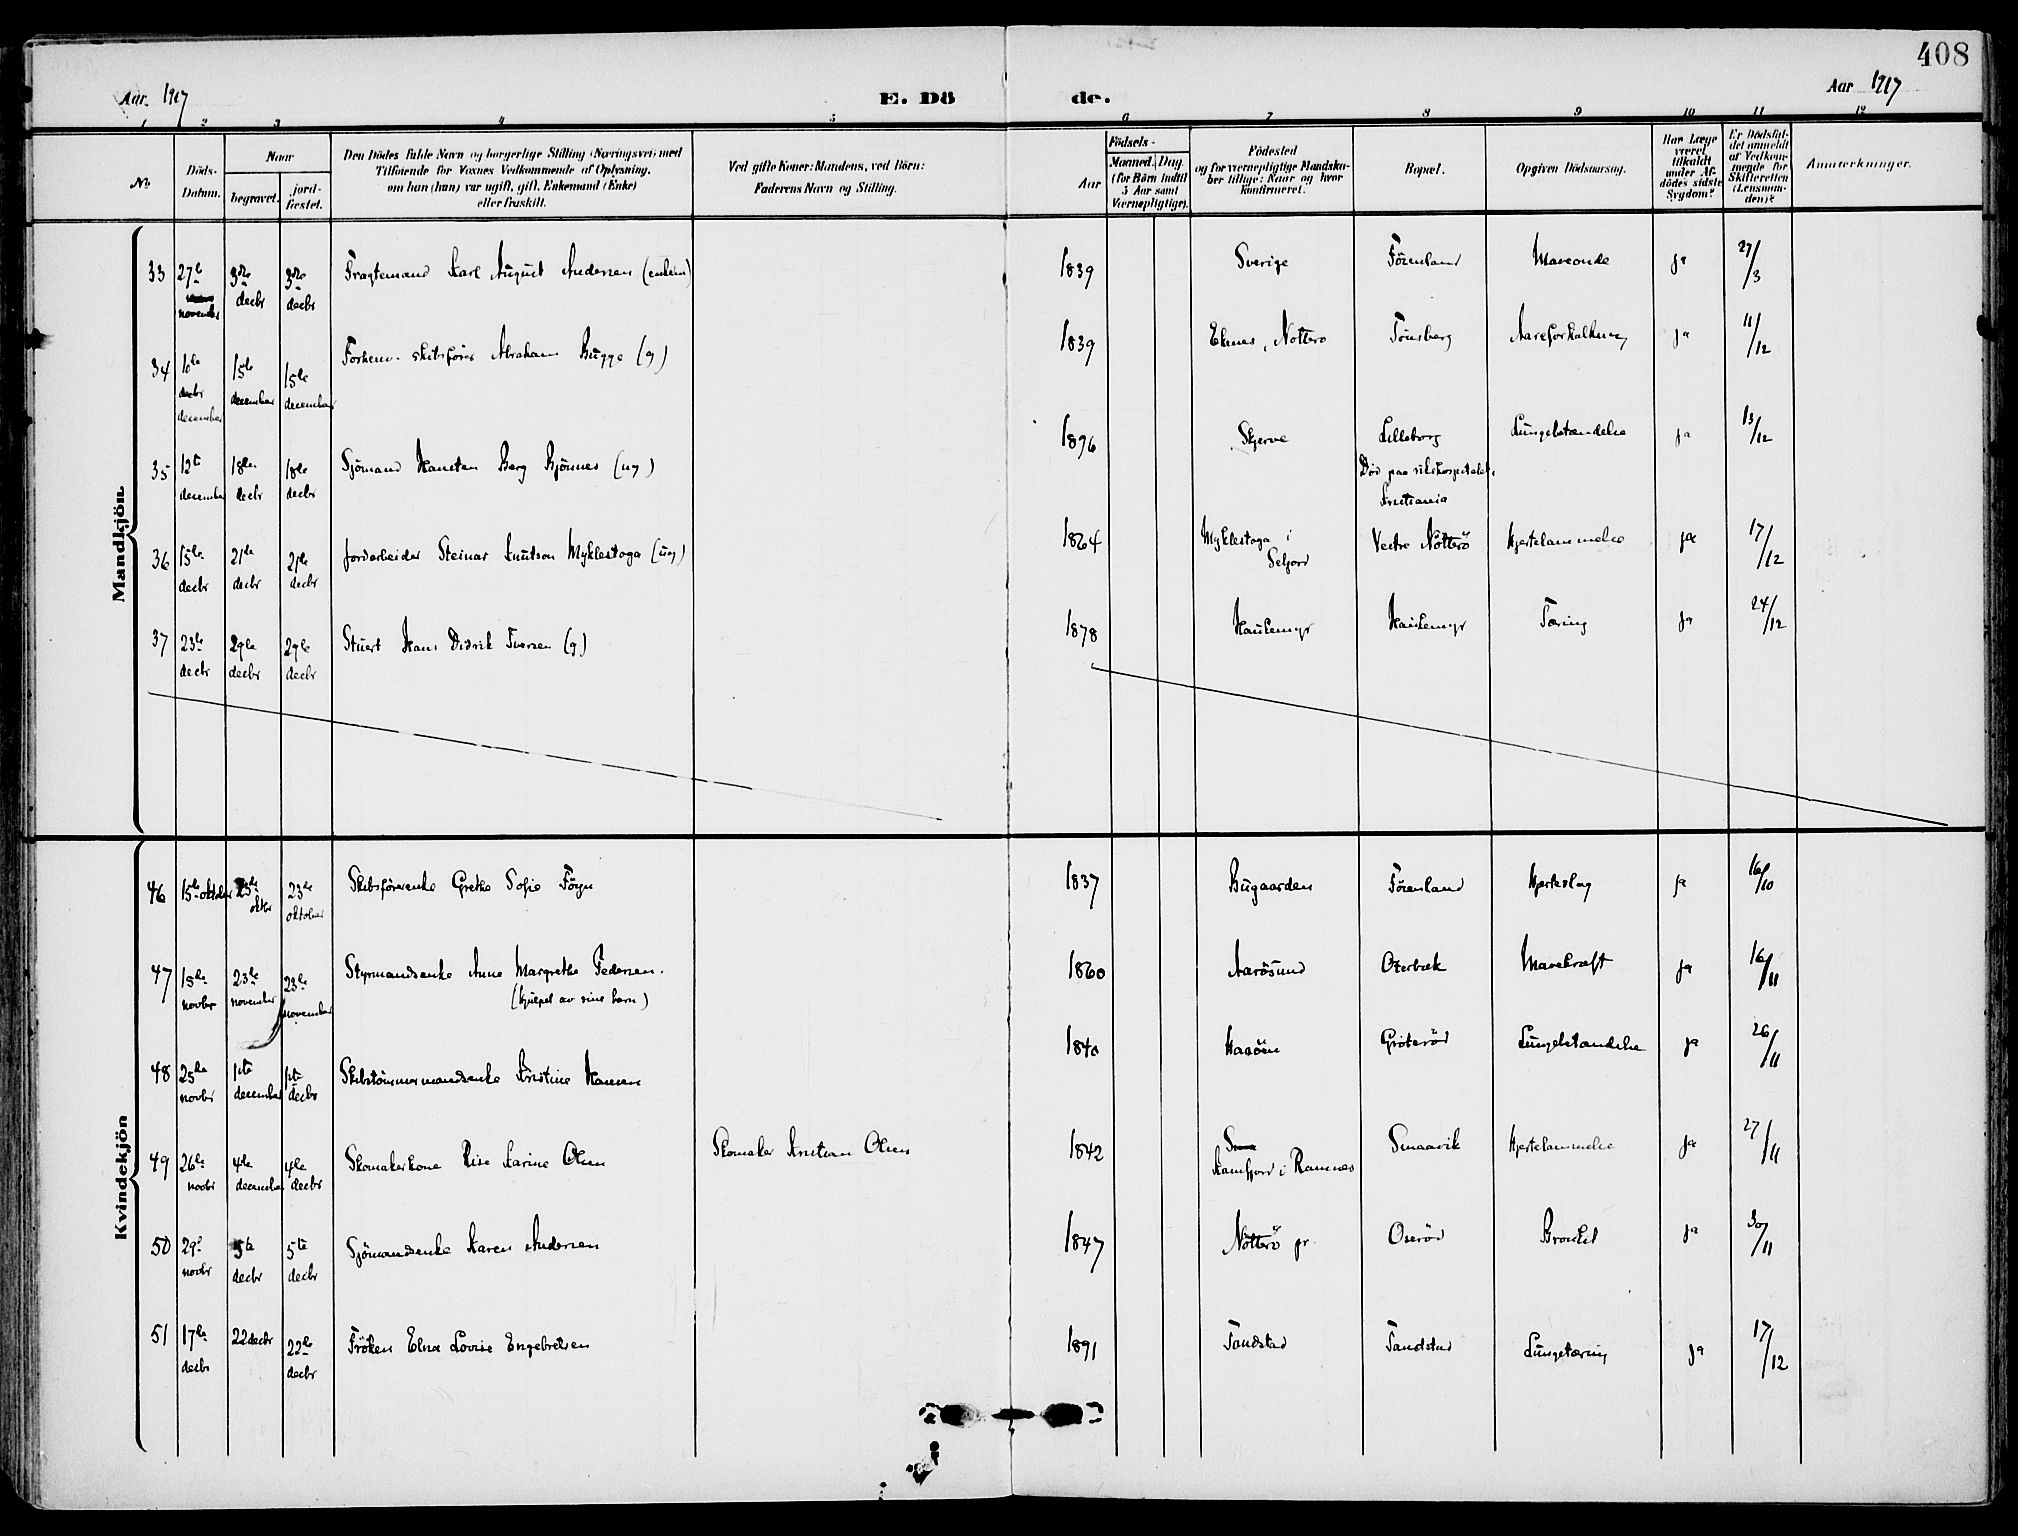 408
Aar 1917
E. Döde.
Aar 1917
1 2 3 4 5 6 7 8 9 10 11 12
No.
Döds-Datum.
Naar
begravet.
jordfæstet.
Den Dödes fulde Navn og borgerlige Stilling (Næringsvei) med
Tilföiende for Voxnes Vedkommende af Oplysning,
om han (hun) var ugift, gift, Enkemand (Enke)
eller fraskilt.
Ved gifte Koner: Mandens, ved Börn:
Faderens Navn og Stilling.
Födsels-
Aar
Maaned. Dag.
(for Börn indtil
5 Aar samt
Værnepligtige).
Födested
og for værnepligtige Mandska-
ber tillige: Naar og hvor
konfirmeret.
Bopæl.
Opgiven Dödsaarsag.
Har Læge
været
tilkaldt
under Af-
dödes sidste
Sygdom?
Er Dödsfal-
det anmeldt
af Vedkom-
mende for
Skifteretten
(Lensman-
den)?
Anmærkninger.
Mandkjön
33 27de november 3die decbr 3die decbr Fragtemand Karl August Andersen (enkem) 1839 Sverige Föienland ja 27/3
34 10de december 15de december 15de december Forhenv. skibsförer Abraham Bugge (g) 1839 Ekenes, Nötterö Tönsberg Aareforkalkning ja 11/12
35 12te december 18de decbr 18de decbr Sjömand Karsten Berg Bjönnes (ug) 1896 Skjerve Lilleborg Lungebetændelse ja 13/12
Död paa rikshospitalet,
Kristiania
36 15de decbr 21de decbr 21de decbr Jordarbeider Steinar Knutson Myklestoga (ug) 1864 Myklestoga i Seljord Vestre Nötterö Hjertelammelse ja 17/12
37 23de decbr 29de decbr 29de decbr Stuert Hans Didrik Iversen (g) 1878 Haukemyr Haukemyr Tæring ja 24/12
Kvindekjön
46 15de oktober 23de oktbr 23de oktober Skibsförerenke Grethe Sofie Föyn 1837 Bugaarden Föienland Hjerteslag ja 16/10
47 15de novbr 23de november 23de november Styrmandsenke Anne Margrethe Pedersen. 1860 Aarösund Oterbæk Mavekræft ja 16/11
(hjulpet av sine barn)
48 25de novbr 1ste december 1ste decbr Skibstömmermandsenke Kristine Hansen 1840 Haaöen Gröteröd Lungebetændelse ja 26/11
49 26de novbr 4de december 4de decbr Skomakerkone Rise Karine Olsen Skomaker Kristian Olsen 1842 Kamfjord i Ramnes Smaavik Hjertelammelse ja 27/11
50 29de novbr 5te decbr 5te decbr Sjömandsenke Karen Andersen 1847 Nötterö pr. Oseröd Bronkit ja 30/11
51 17de decbr 22 decbr 22de decbr Fröken Elna Lovise Engebretsen 1891 Tandstad Tandstad Lungetæring ja 17/12